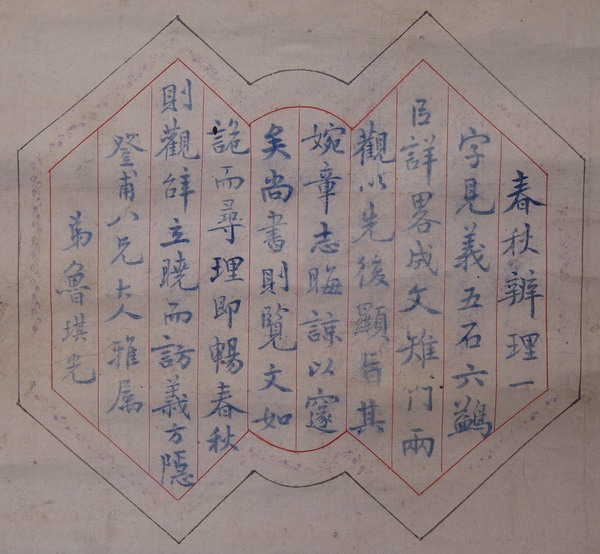 春秋辨理一
字見義五石六鷁
㠯詳畧成文雉门兩
觀以先後顯旨其
婉章志晦諒以邃
矣尚書則覽文如
詭而尋理即暢春秋
則觀辝立曉而訪義方隱
登甫八兄大人雅属
弟魯琪光